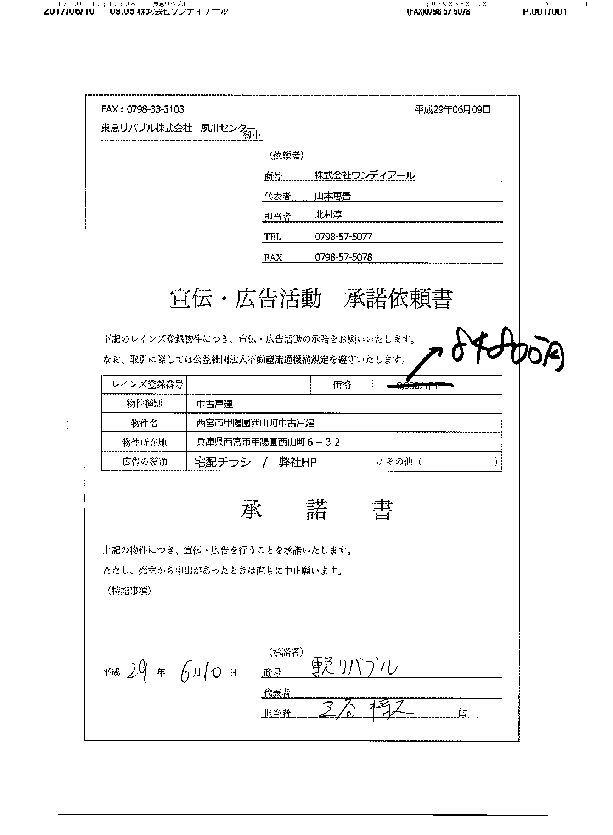 2017/06/10 09:05 株式会社ワンディアール (FAX)0798 57 5078 P.001/001
FAX：0798-33-3103 平成29年06月09日
東急リバブル株式会社 夙川センター
御中
（依頼者）
商号 株式会社ワンディアール
代表者
担当者 北村淳
TEL 0798-57-5077
FAX 0798-57-5078
宣伝・広告活動 承諾依頼書
下記のレインズ登録物件につき、宣伝・広告活動の承諾をお願いいたします。
なお、取引に際しては公益社団法人不動産流通機構規定を遵守いたします。
レインズ登録番号 価格
物件種類 中古戸建
物件名 西宮市甲陽園西山町中古戸建
物件所在地 兵庫県西宮市甲陽園西山町6－32
広告の種類 宅配チラシ / 弊社HP / その他（ ）
承 諾 書
上記の物件につき、宣伝・広告を行うことを承諾いたします。
ただし、売主から申出があったときは直ちに中止願います。
（特記事項）
（承諾者）
平成 29 年 6月10日 商号 東急リバブル
代表者
担当者